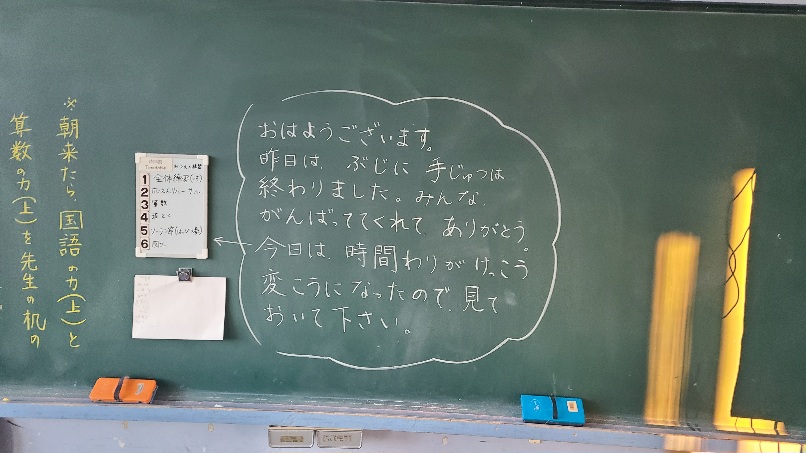 ※朝来たら、国語の力(上)と
算数の力(上)を先生の机の
おはようございます。
昨日は、ぶじに手じゅつは
終わりました。みんな、
がんばっててくれて、ありがとう。
今日は、時間わりがけっこう
変こうになったので、見て
おいて下さい。
1
2
3 算数
4
5
6